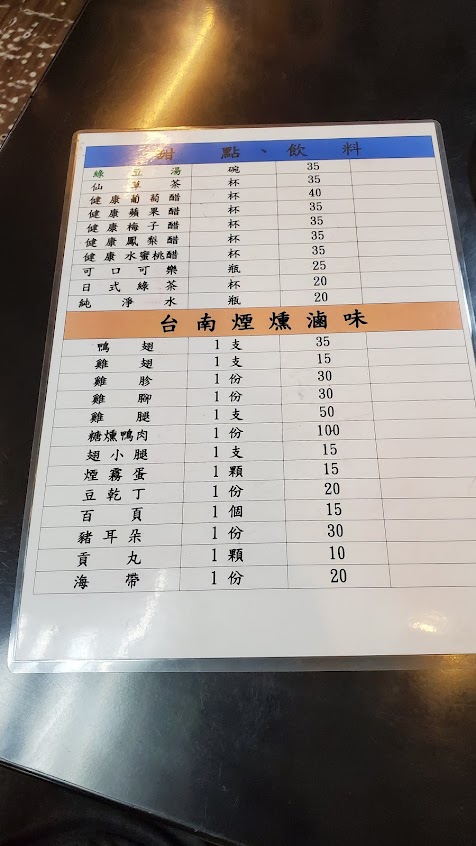 甜點、飲料
綠豆湯 碗 35
仙草茶 杯 35
健康葡萄醋 杯 40
健康蘋果醋 杯 35
健康梅子醋 杯 35
健康鳳梨醋 杯 35
健康水蜜桃醋 杯 35
可口可樂 瓶 25
日式綠茶 杯 20
純淨水 瓶 20
台南煙燻滷味
鴨翅 1支 35
雞翅 1支 15
雞胗 1份 30
雞腳 1份 30
雞腿 1支 50
糖燻鴨肉 1份 100
翅小腿 1支 15
煙霧蛋 1顆 15
豆乾丁 1份 20
百頁 1個 15
豬耳朵 1份 30
貢丸 1顆 10
海帶 1份 20